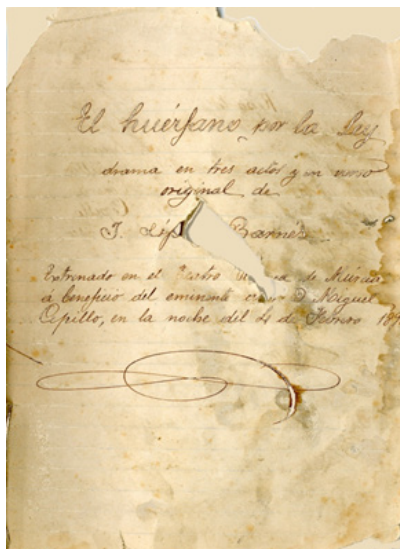 El huérfano por la Ley
drama en tres actos y en verso
original de
J. Barnés
Estrenado en el Teatro de Murcia
á beneficio del eminente D Miguel
Cepillo, en la noche del 4 de Febrero 189